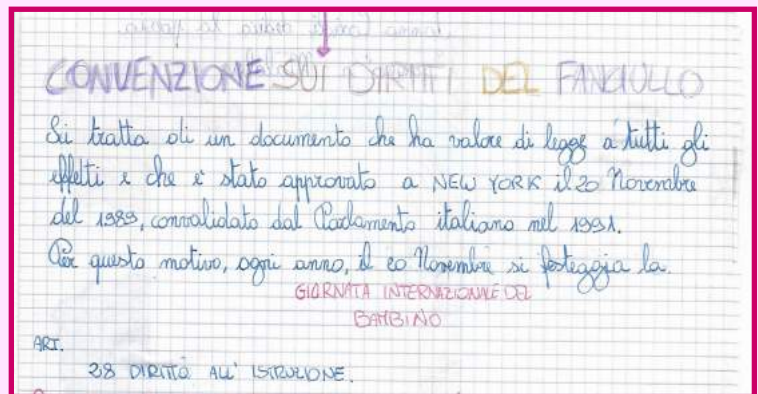 CONVENZIONE SUI DIRITTI DEL FANCIULLO
Si tratta di un documento che ha valore di legge a tutti gli
effetti e che è stato approvato a NEW YORK il 20 Novembre
del 1989, convalidato dal Parlamento italiano nel 1991.
Per questo motivo, ogni anno, il 20 Novembre si festeggia la
GIORNATA INTERNAZIONALE DEL
BAMBINO
ART.
28 DIRITTO ALL' ISTRUZIONE.